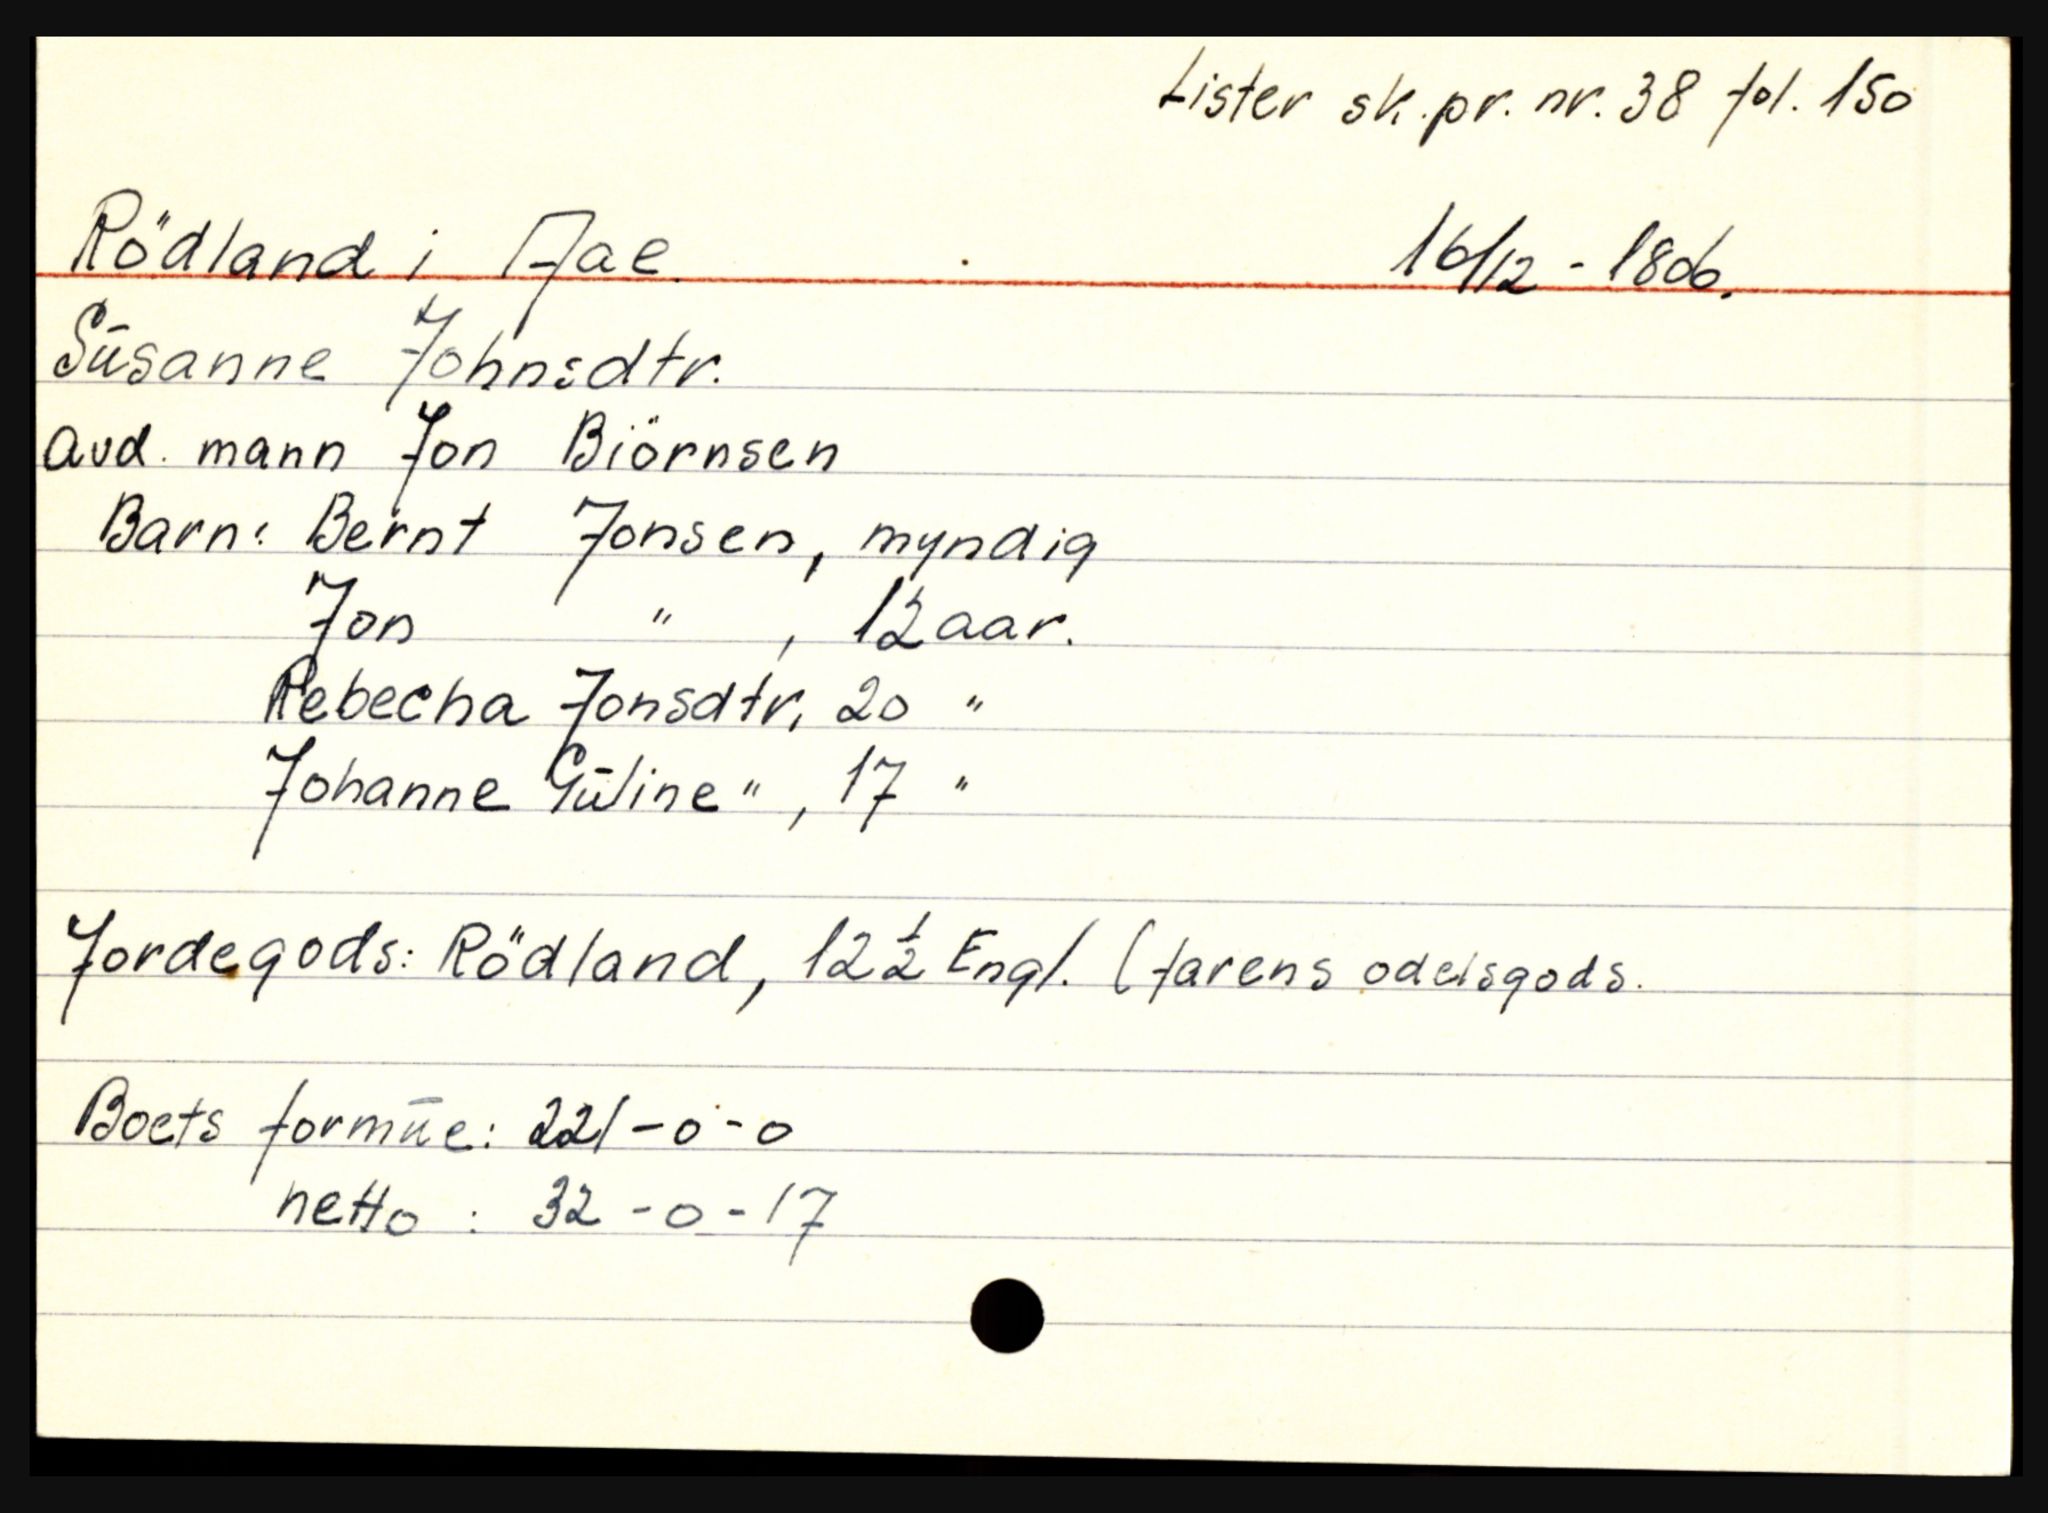 Lister sk.pr. nr. 38 fol. 150
Rödland i Aae. 16/12 - 1806.
Sūsanne Johnsdtr.
Avd. mann Jon Biörnsen
Barn: Bernt Jonsen, myndig
Jon " , 12 aar.
Rebecha Jonsdtr, 20 "
Johanne Gūline " , 17 "
Jordegods: Rödland, 12 1/2 Engl. (farens odelsgods.
Boets formūe: 221 - 0 - 0
netto : 32 - 0 - 17